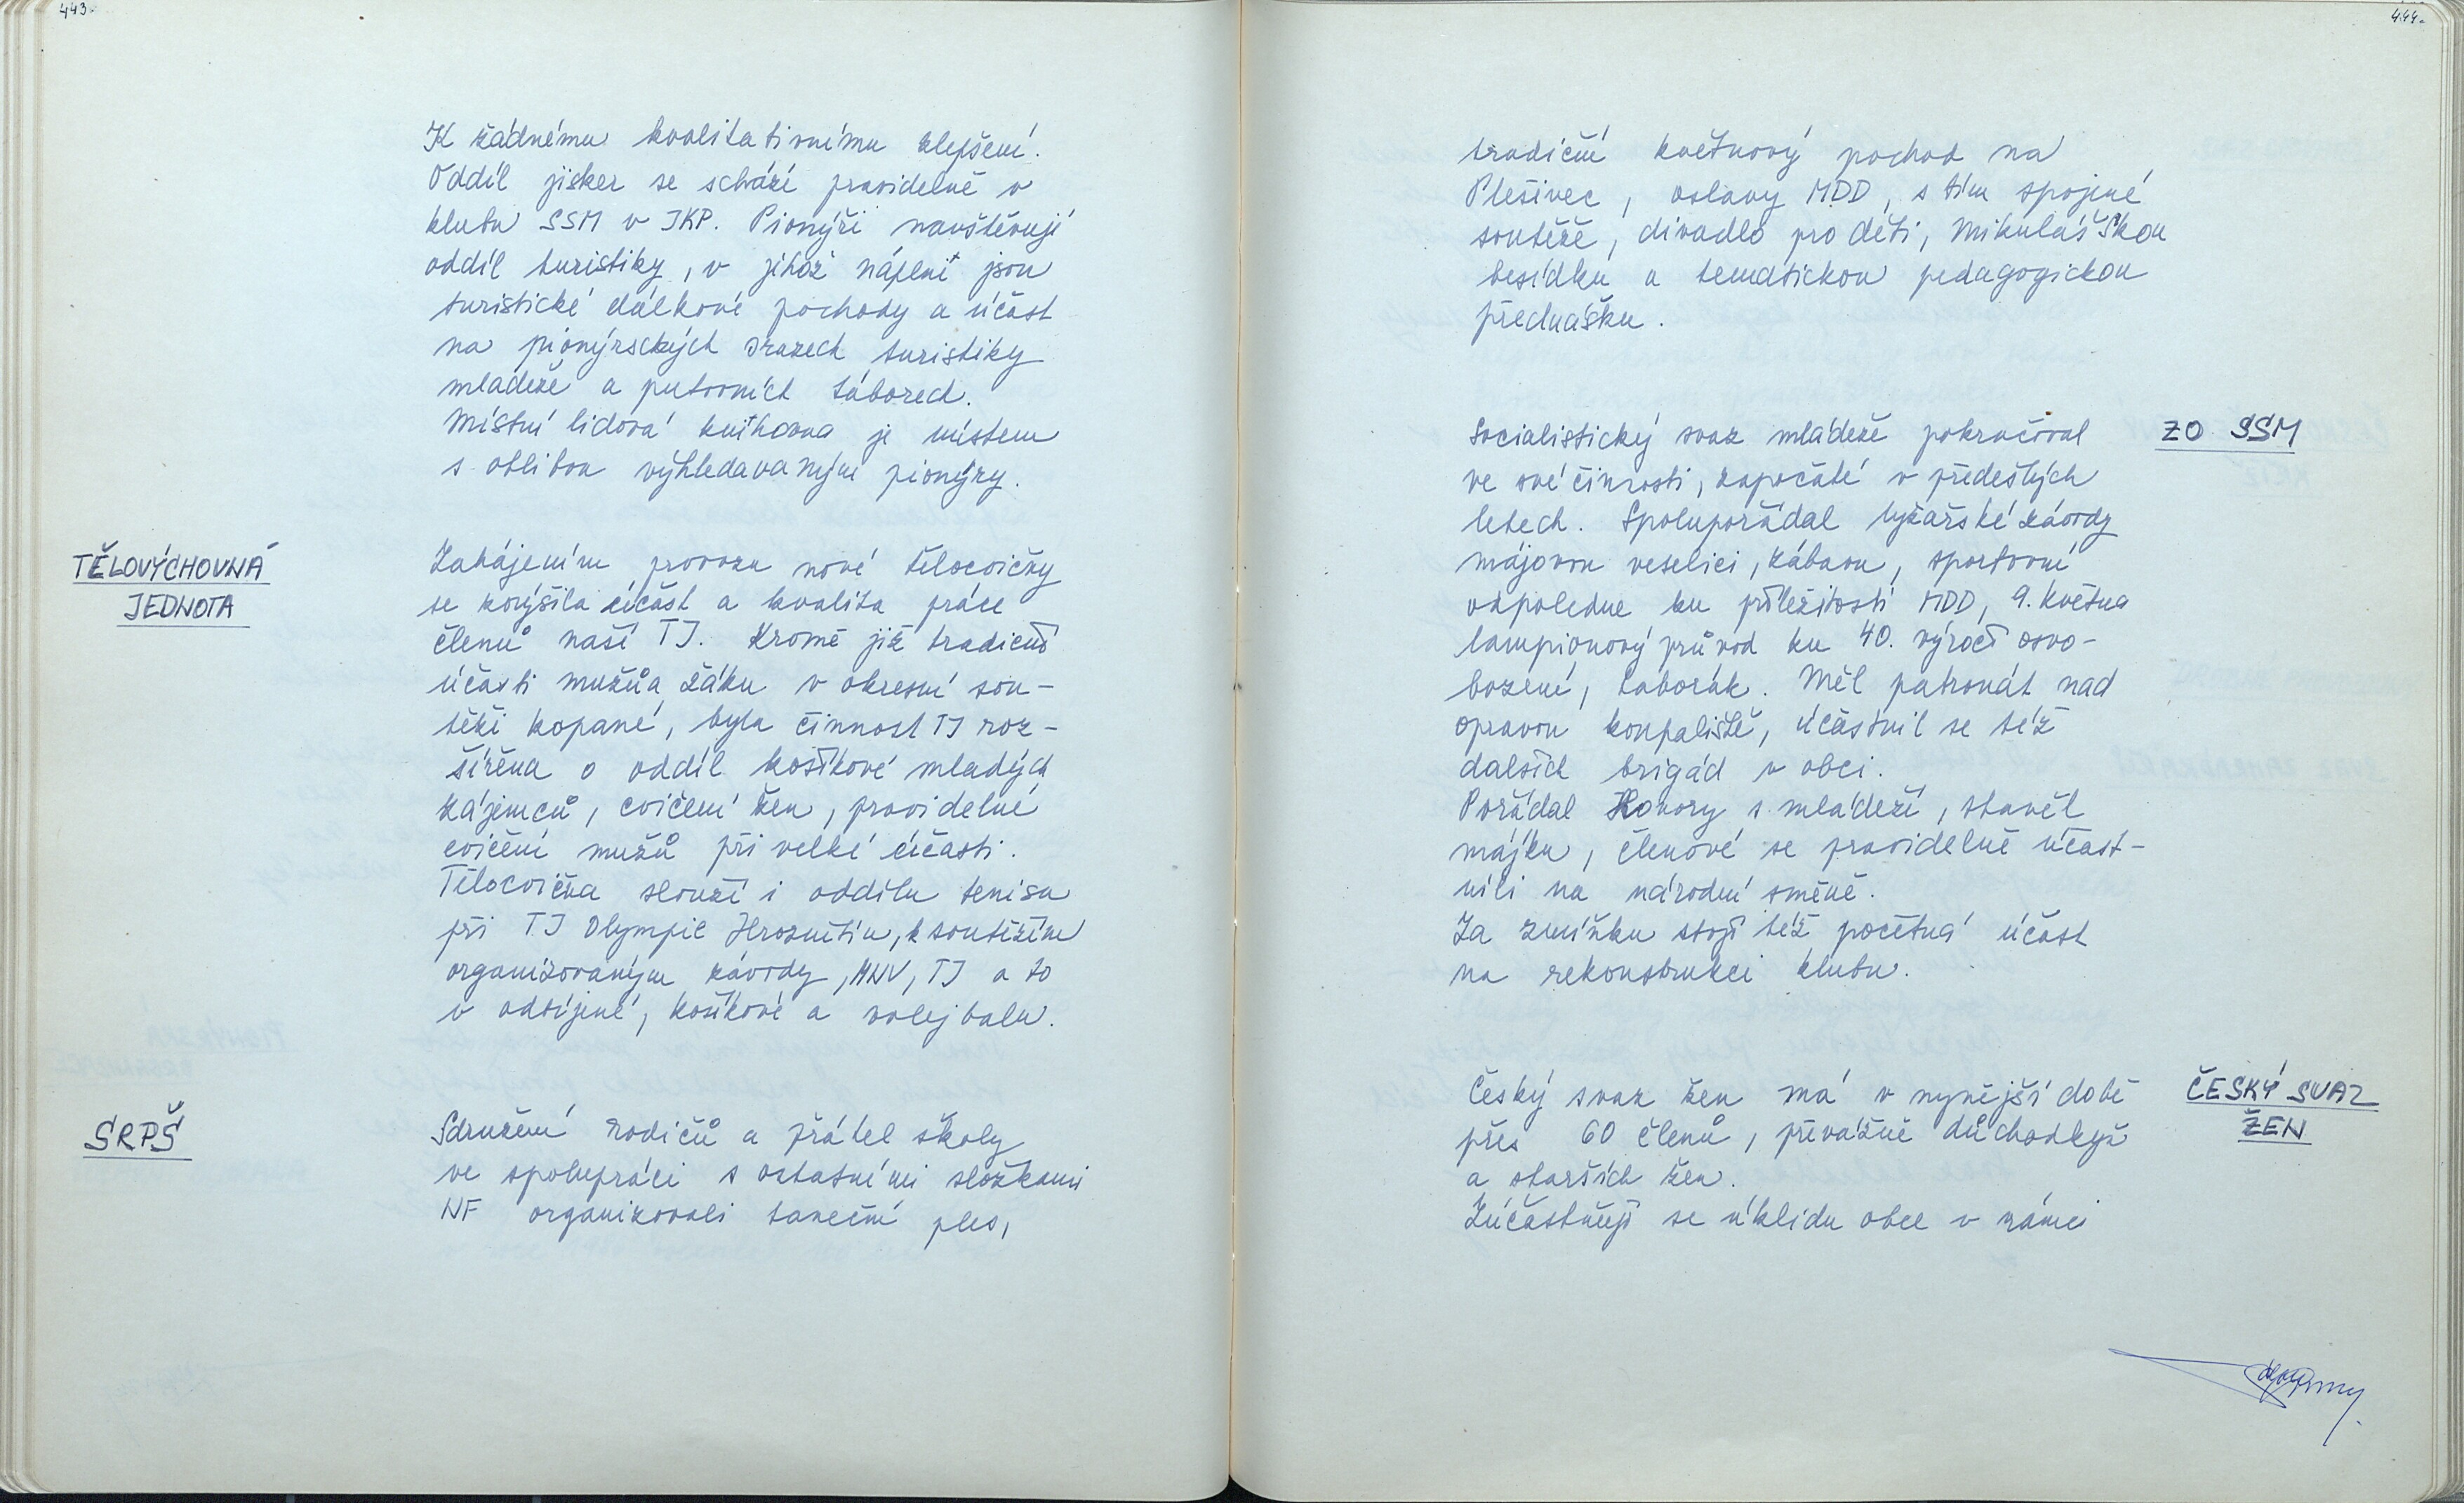 443.
K žádnému kvalitativnímu zlepšení.
Oddíl jisker se schází pravidelně v
klubu SSM v JKP. Pionýři navštěvují
oddíl turistiky, v jehož náplni jsou
turistické dálkové pochody a účast
na pionýrských srazech turistiky
mládeže a putovních táborech.
Místní lidová knihovna je místem
s oblibou vyhledávaným pionýry.
TĚLOVÝCHOVNÁ
JEDNOTA
Zahájením provozu nové tělocvičny
se zvýšila účast a kvalita práce
členů naší TJ. Kromě již tradiční
účasti mužů a žáků v okresní sou-
těži kopané, byla činnost TJ roz-
šířena o oddíl košíkové mladých
zájemců, cvičení žen, pravidelné
cvičení mužů při velké účasti.
Tělocvična slouží i oddílu tenisu
při TJ Olympie Hroznětín, k soutěžím
organizovaným závody, MNV, TJ a to
v odbíjené, košíkové a volejbalu.
SRPŠ
Sdružení rodičů a přátel školy
ve spolupráci s ostatními složkami
NF organizovali taneční ples,
444.
tradiční květnový pochod na
Plešivec, oslavy MDD, s tím spojené
soutěže, divadlo pro děti, Mikulášskou
besídku a tematickou pedagogickou
přednášku.
ZO SSM
Socialistický svaz mládeže pokračoval
ve své činnosti, započaté v předešlých
letech. Spolupořádal lyžařské závody
májovou veselici, zábavu, sportovní
odpoledne ku příležitosti MDD, 9. května
lampionový průvod ku 40. výročí osvo-
bození, táborák. Měl patronát nad
opravou koupaliště, účastnil se též
dalších brigád v obci.
Pořádal Hovory s mládeží, stavěl
májku, členové se pravidelně účast-
nili na národní směně.
Za zmínku stojí též početná účast
na rekonstrukci klubu.
ČESKÝ SVAZ
ŽEN
Český svaz žen má v nynější době
přes 60 členů, převážně důchodkyň
a starších žen.
Zúčastňují se úklidu obce v rámci